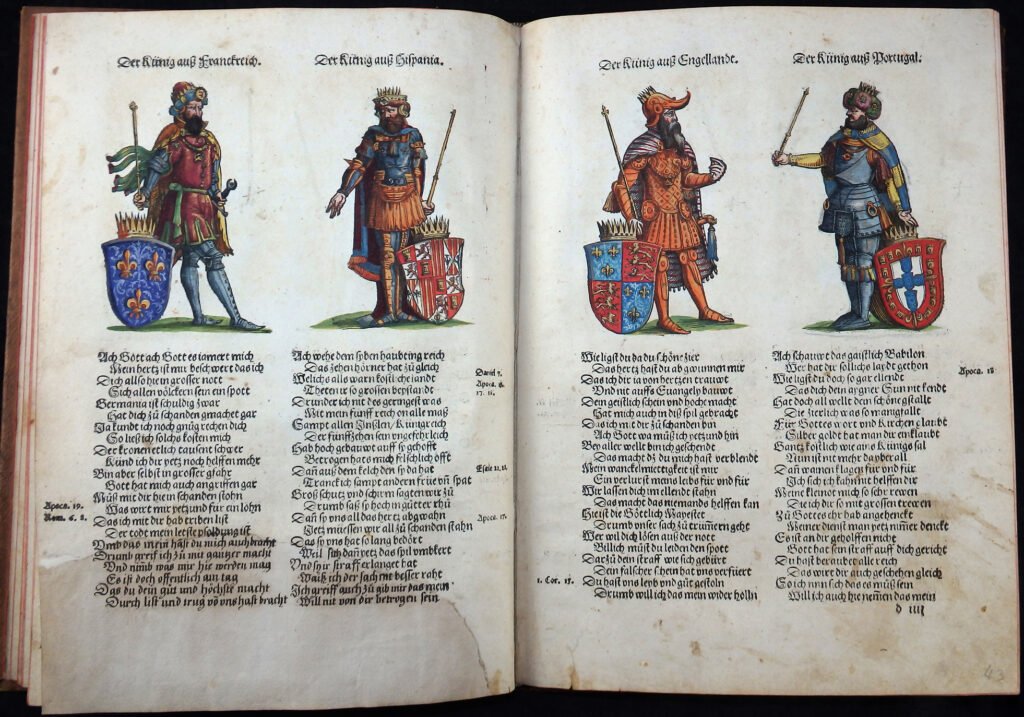 Der Künig auß Franckreich.
Ach Gott ach Gott es iamert mich
Mein hertz ist mir beschwert das ich
Dich allso hie in grosser nott
Sich allen völckern sein ein spott
Germania ist schuldig zwar
Hat doch zů schanden gmachet gar
Ja kundt ich noch gnůg rechen dich
So ließ ich solchs kosten mich
Der kronen etlich tausent schwer
Künd ich dir yetz noch helffen mehr
Bin aber selbst in grosser gfahr
Gott hat mich auch angriffen gar
Můß mit dir hie in schanden stohn
Apoca. 19.
Was wirt mir yetzund für ein lohn
Rom. 6. 8.
Das ich mit dir hab triben list
Der todt mein letste psoldung ist
Umb das mein hast du mich auch bracht
Drumb greif ich zů mit gantzer macht
Und nimb was mir hie werden mag
Es ist doch offentlich am tag
Das du dein gůt und höchste macht
Durch list und trug võ ons hast bracht
Der Künig auß Hispania.
Ach wehe dem syben haubting reich
Das zehen hörner hat zů gleich
Daniel 7.
Welichs alls warn köstliche landt
Apoca. 8.
Theten ir so grossen beystandt
17. 11.
Drunder ich mit des geringest was
Mit mein fünff reich on alle maß
Sampt allen Jnßlen, Künigreich
Der fünffzehen sein ungefehrlich
Hab hoch gebauwet auff sy gehofft
Betrogen hats mich fälschlich offt
Dañ auß dem kelch den sy da hat
Tranck ich sampt andern frie vñ spat
Groß schutz und schirm sagten wir zů
Drumb saß sy hoch in gůtter rhů
Apoca. 17.
Dañ sy ons all das hertz abgwahn
Jetz müessen wir all zů schanden stahn
Das sy ons hat so lang bedört
Weil sich dañ yetz das spil umbkert
Und ihr straff erlanget hat
Waiß ich der sach nit besser raht
Jch greiff auch zů gib mir das mein
Will nit von dir betrogen sein
Der Künig auß Engellandt.
Wie ligst du da du schöne zier
Das hertz hast du ab gewunnen mir
Das ich dir ia von hertzen trauwt
Und nit auffs Euangely bauwt
Des geistlich schein und hoch macht
Hat mich auch in diß spil gebracht
Das ich mit dir zů schanden bin
Ach Gott wa můß ich yetzund hin
Bey aller welt bin ich geschendt
Das macht dz du mich hast verblendt
Mein wanckelmiettigkeit ist mir
Ein verlurst meins leibs für und für
Wir lassen dich im ellendt stahn
Das macht das niemands helffen kan
Hie ist die Göttlich Mayestet
Drumb unser sach zů trümern geht
Wer wil dich lösen auß der nott
Billich můst du leiden den spott
Dar zů dem straff wie sich gebürt
Den falscher schein hat ons verfüert
1. Cor. 15.
Du hast ons leyb und gůt gestoln
Drumb will ich das mein wider holln
Der Künig auß Portugal.
Ach schauwet das gaistlich Babilon
Wer hat dir sollichs laydt gethon
Apoca. 18
Wie ligst du doch so gar ellendt
Das dich dein aygner Sun nit kendt
Hat doch all wellt dem schöne gstalle
Die zierlich was so manigfalle
Für Gottes wort und Kirchen glaubt
Silber goldt hat man dir einklaubt
Gantz köstlich wie ains Künigs sal
Nun ist nit mehr da yber all
Dañ wainen klagen für und für
Jch sich ich kan nit helffen dir
Meine kleinot mich so sehr rewen
Die ich dir so mit grossen trewen
Zů Gottes ehr hab angehenckt
Meiner dienst man yetz nimer denckt
Es ist an dir geholffen nicht
Gott hat sein straff auff dich gericht
Du hast beraubet alle reich
Das wirt dir auch geschehen gleich
Ei so nim ich das es můß sein
Will ich auch hie nemen das mein
d iiij
43